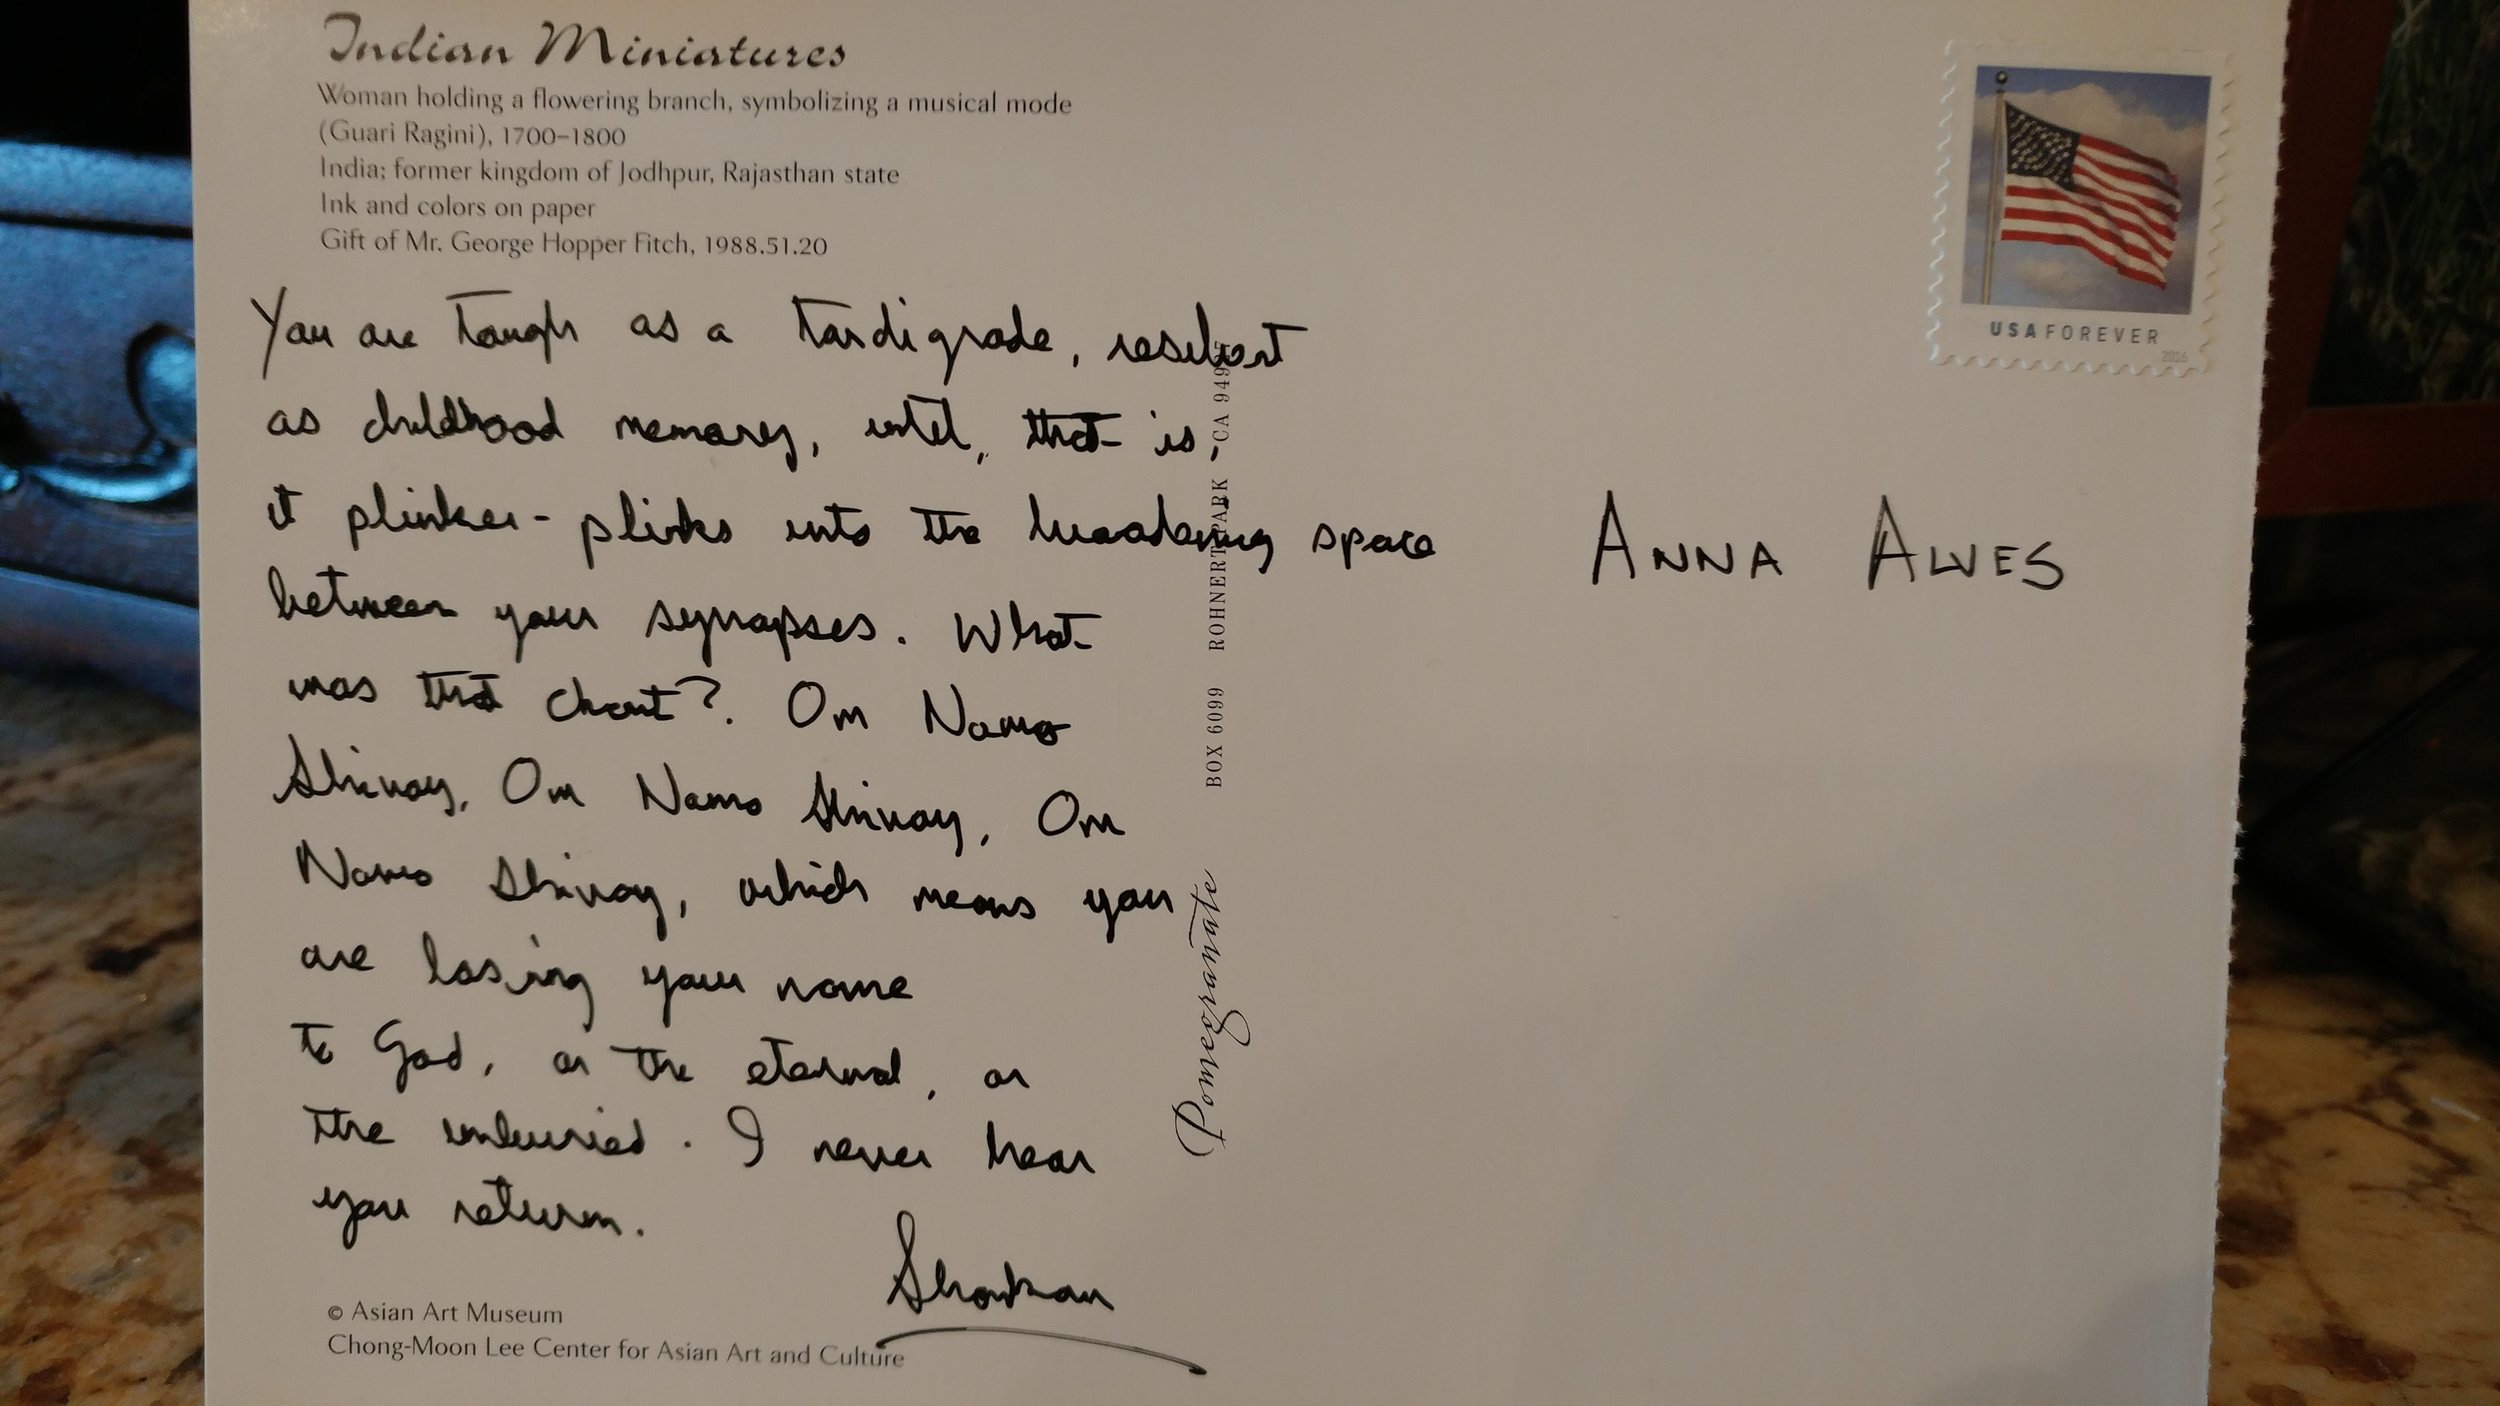 Indian Miniatures
Woman holding a flowering branch, symbolizing a musical mode
(Guari Ragini), 1700–1800
India; former kingdom of Jodhpur, Rajasthan state
Ink and colors on paper
Gift of Mr. George Hopper Fitch, 1988.51.20
You are tough as a tardigrade, resilient
as childhood memory, until, that is,
it plinker-plinks into the broadening space
between your synapses. What
was that chant?. Om Namo
Shivay, Om Namo Shivay, Om
Namo Shivay, which means you
are losing your name
to God, or the eternal, or
the unburied. I never hear
you return.
Shankar
© Asian Art Museum
Chong-Moon Lee Center for Asian Art and Culture
Pomegranate
BOX 6099 ROHNERT PARK, CA 949
USA FOREVER
2016
ANNA ALVES